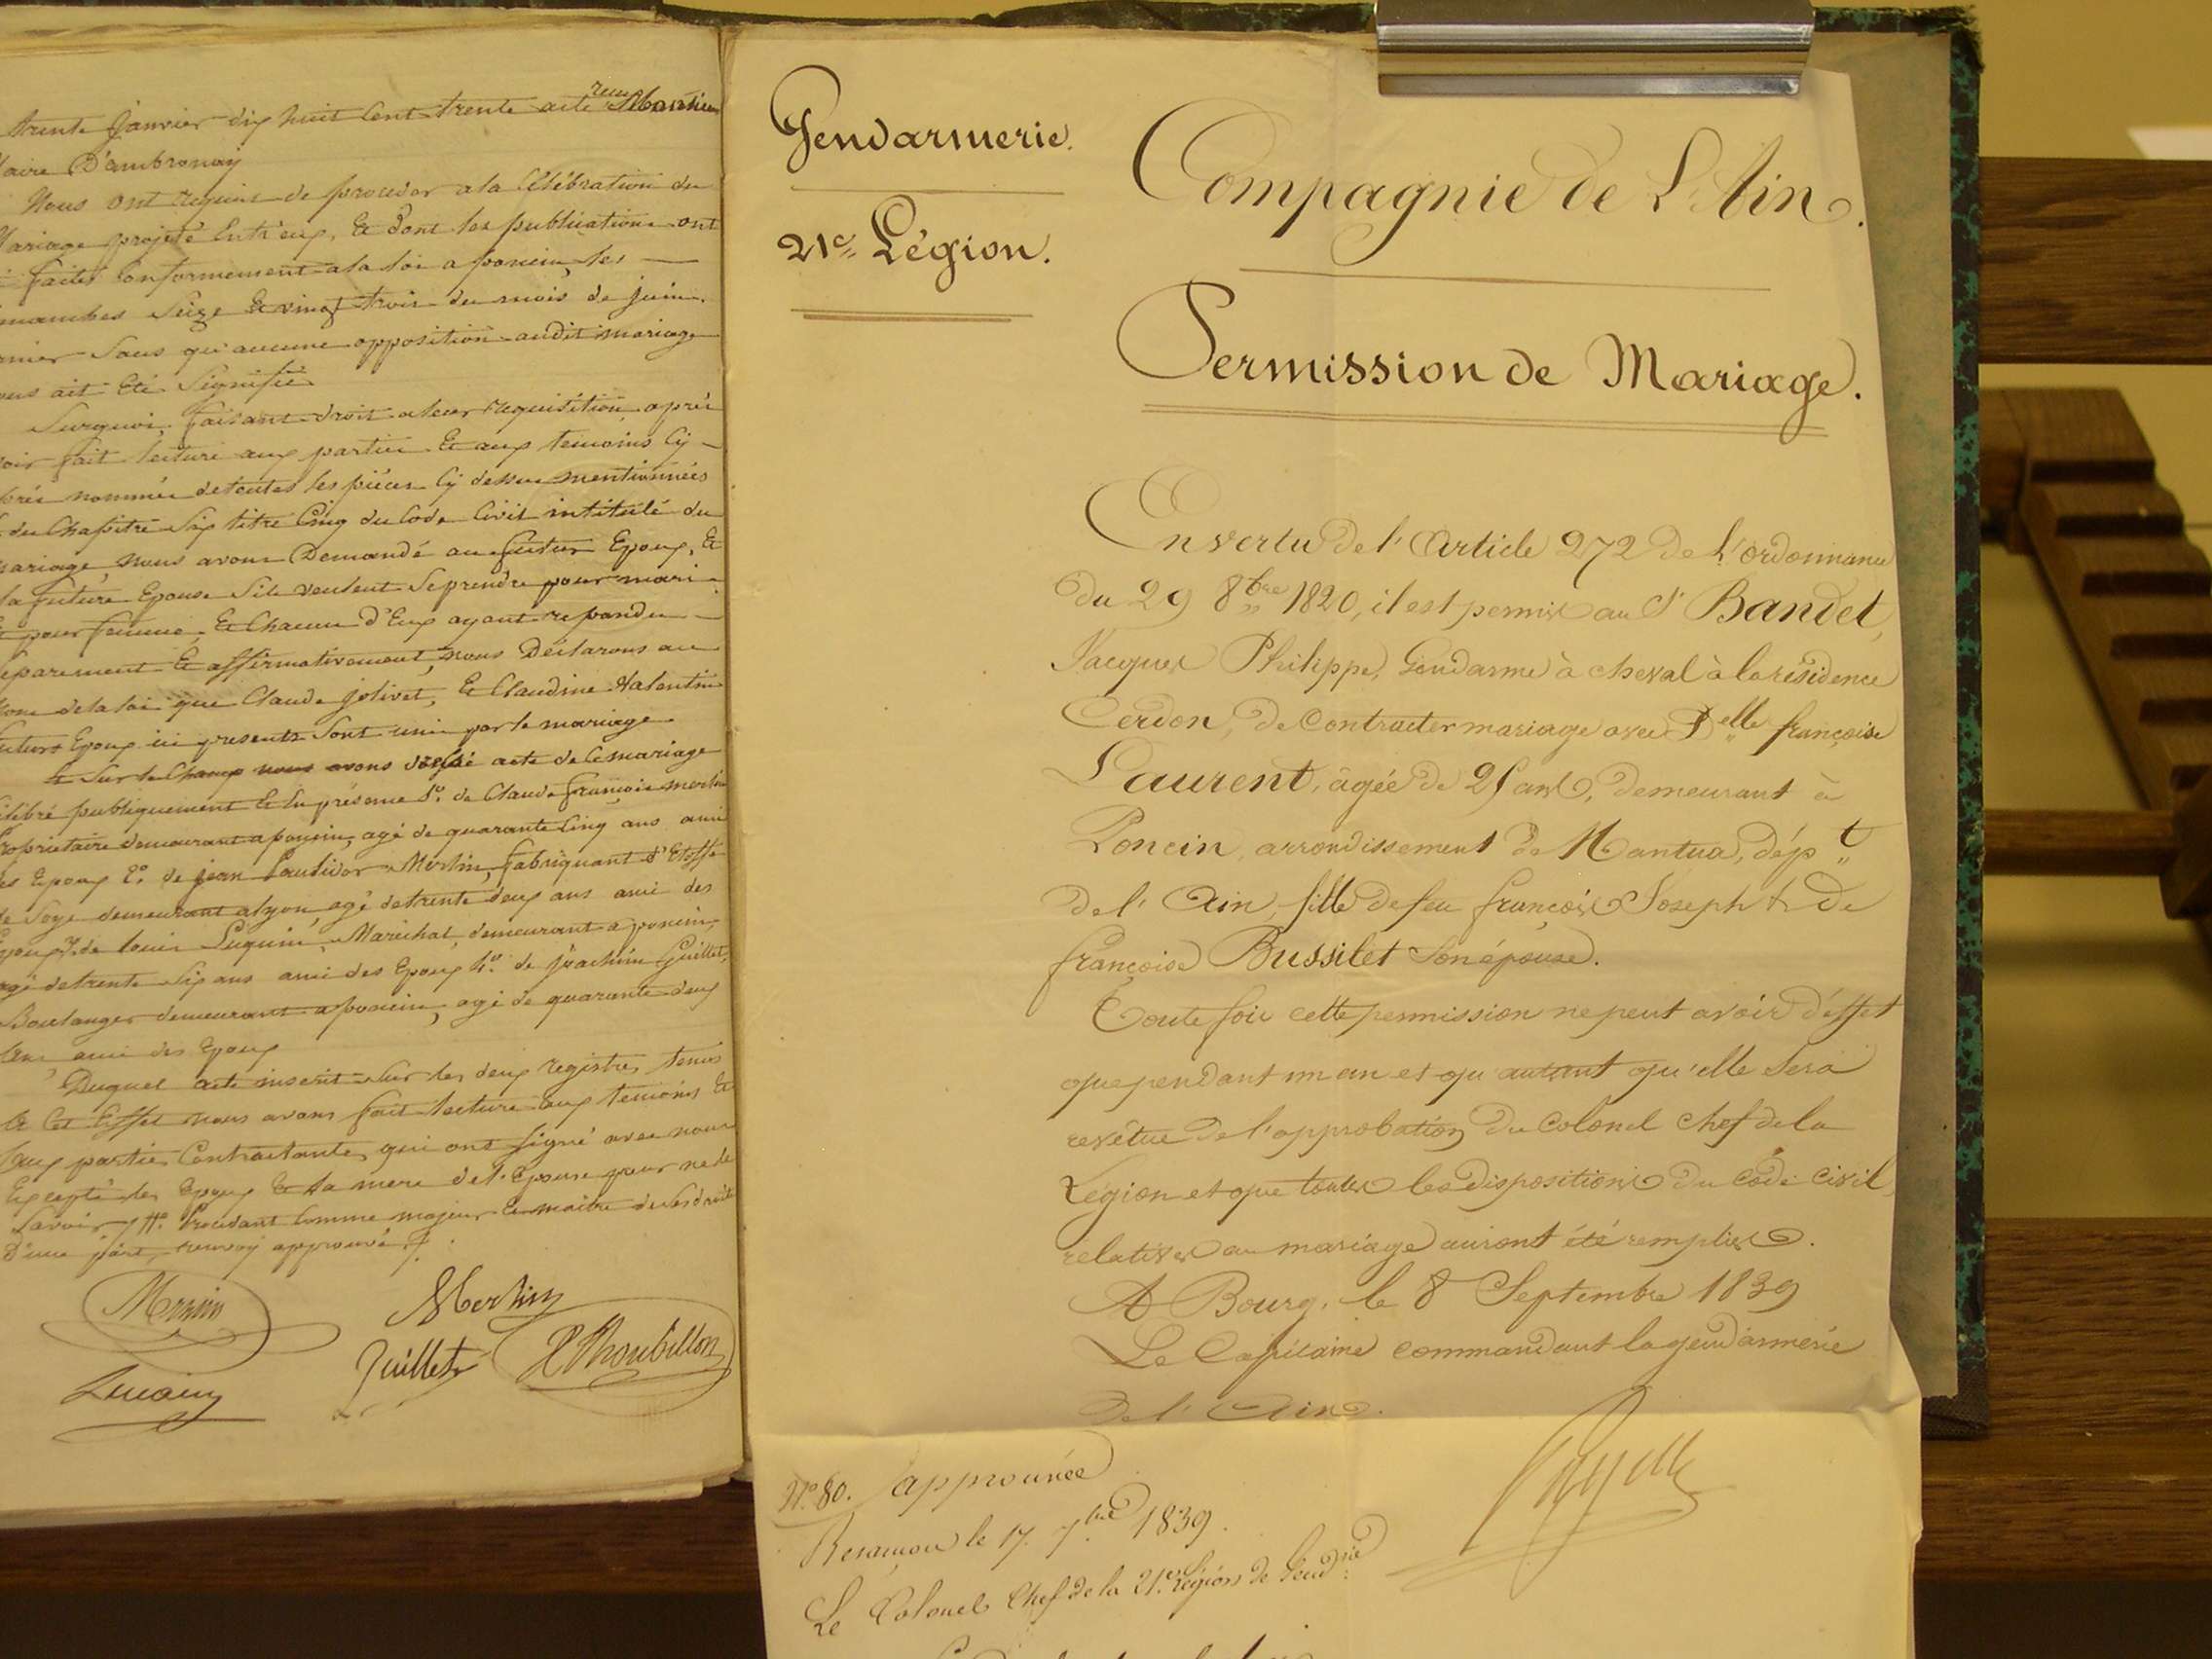 trente Janvier dix huit Cent trente acte reçu Martin
Maire D'ambronay
Nous ont requis de proceder a la Célébration du
Mariage projeté Entr'eux, Et dont les publications ont
faites Conformement a la loi a poncin, les
Seize Et vingt trois du mois de juin
Sans qu'aucune opposition audit mariage
ait Eté Signifiée
Surquoi, faisant droit a leur requisition, après
fait lecture aux parties Et aux temoins Cy
nommés de toutes les pièces Cy dessus mentionnées
du Chapitre Six titre Cinq du Code Civil intitulé du
mariage, nous avons Demandé au futur Epoux, Et
la future Epouse S'ils veulent Se prendre pour mari
Et pour femme, Et Chacun d'Eux ayant repondu
separement Et affirmativement, nous Déclarons au
nom de la loi que Claude jolivet, Et Claudine Valentin
futurs Epoux ici presents Sont unis par le mariage
Et Sur le Champ nous avons dréssé acte de Ce mariage
célébré publiquement En la présence 1º. de Claude françois
propriétaire demeurant a poncin, agé de quarante Cinq ans ami
des Epoux 2º. de jean Merlin, fabriquant d'Etoffe
de Soye demeurant a lyon, agé de trente deux ans ami des
Epoux, 3º. de louis Luquin, Maréchal, demeurant a poncin,
agé de trente Six ans ami des Epoux 4º. de joachim Guillet,
Boulanger demeurant a poncin, agé de quarante deux
ans, ami des Epoux
Duquel acte inscrit Sur les deux registres tenus
a Cet Effet nous avons fait lecture aux temoins Et
aux parties Contractantes, qui ont Signé avec nous
Excepté les Epoux Et la mere de l'Epouse pour ne le
Savoir, # Procedant Comme majeur Et maitre de Ses droits
D'une part, renvoy approuvé.
Merlin
Guillet
Luquin
Gendarmerie.
21e Légion.
Compagnie de L'Ain.
Permission de Mariage.
En vertu de l'Article 272 de L'ordonnance
du 29 8bre 1820, il est permis au Sr Bandet,
Jacques Philippe, Gendarme à cheval à la résidence
Cerdon, de Contracter mariage avec Delle françoise
Laurent, âgée de 25 ans, demeurant à
Poncin, arrondissement de Mantua, dépt
de l'Ain, fille de feu françois Joseph & de
françoise Bussilet Son épouse.
Toute fois cette permission ne peut avoir d'effet
que pendant un an et qu'autant qu'elle Sera
revêtue de l'approbation du Colonel chef de la
Légion et que toutes les dispositions du Code Civil,
relatives au mariage auront été remplies.
A Bourg, le 8 Septembre 1839
Le Capitaine commandant la gendarmerie
de l'Ain.
Nº 80. approuvée
Besançon le 17. 7bre 1839.
Le Colonel Chef de la 21e Légion de Gendrie